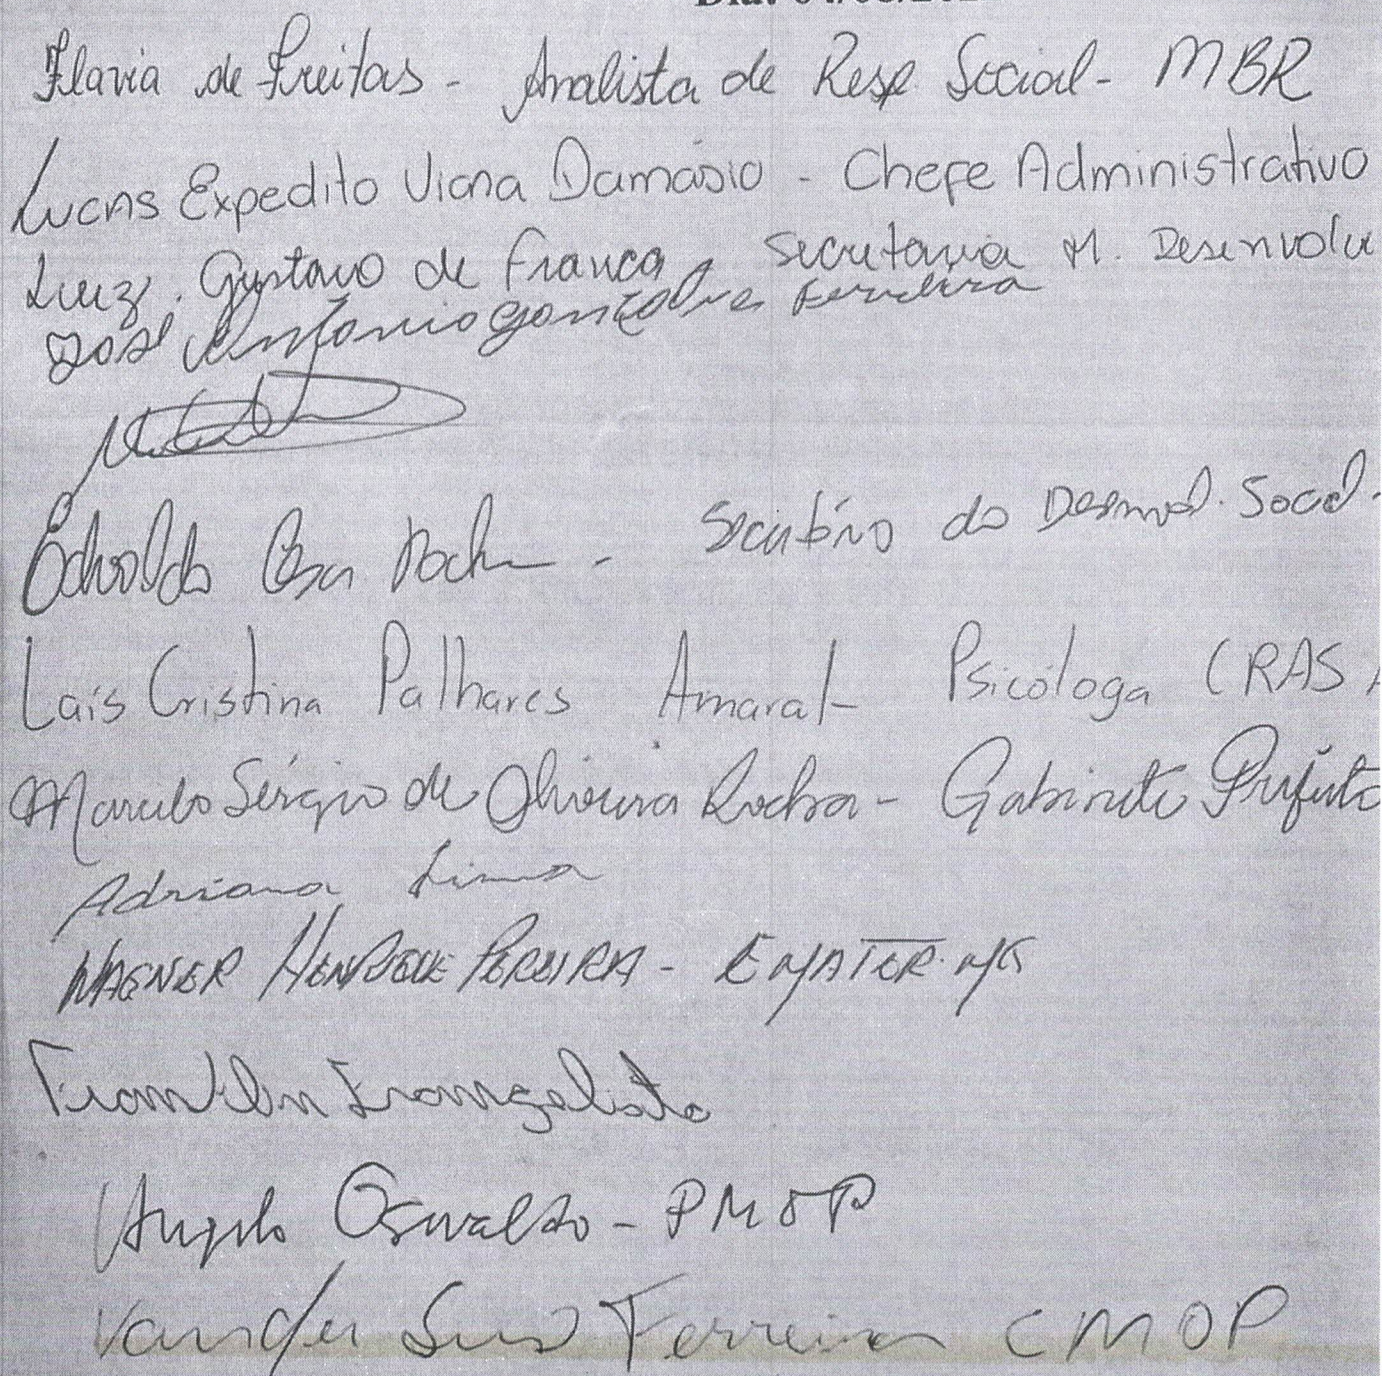 Flavia de Freitas - Analista de Resp. Social - MBR
Lucas Expedito Viana Damásio - Chefe Administrativo
Luiz Gustavo de Franca, Secretaria M. Desenvolvi
José Antonio Gonçalves Ferreira
Rocha - Secretário de Desenvol. Social -
Laís Cristina Palhares Amaral - Psicóloga CRAS A
Marcelo Sérgio de Oliveira Rocha - Gabinete Prefeito
Adriana Lima
WAGNER HENRIQUE PEREIRA - EMATER-MG
Franklin Evangelista
Angelo Oswaldo - PMOP
Vander Luis Ferreira CMOP